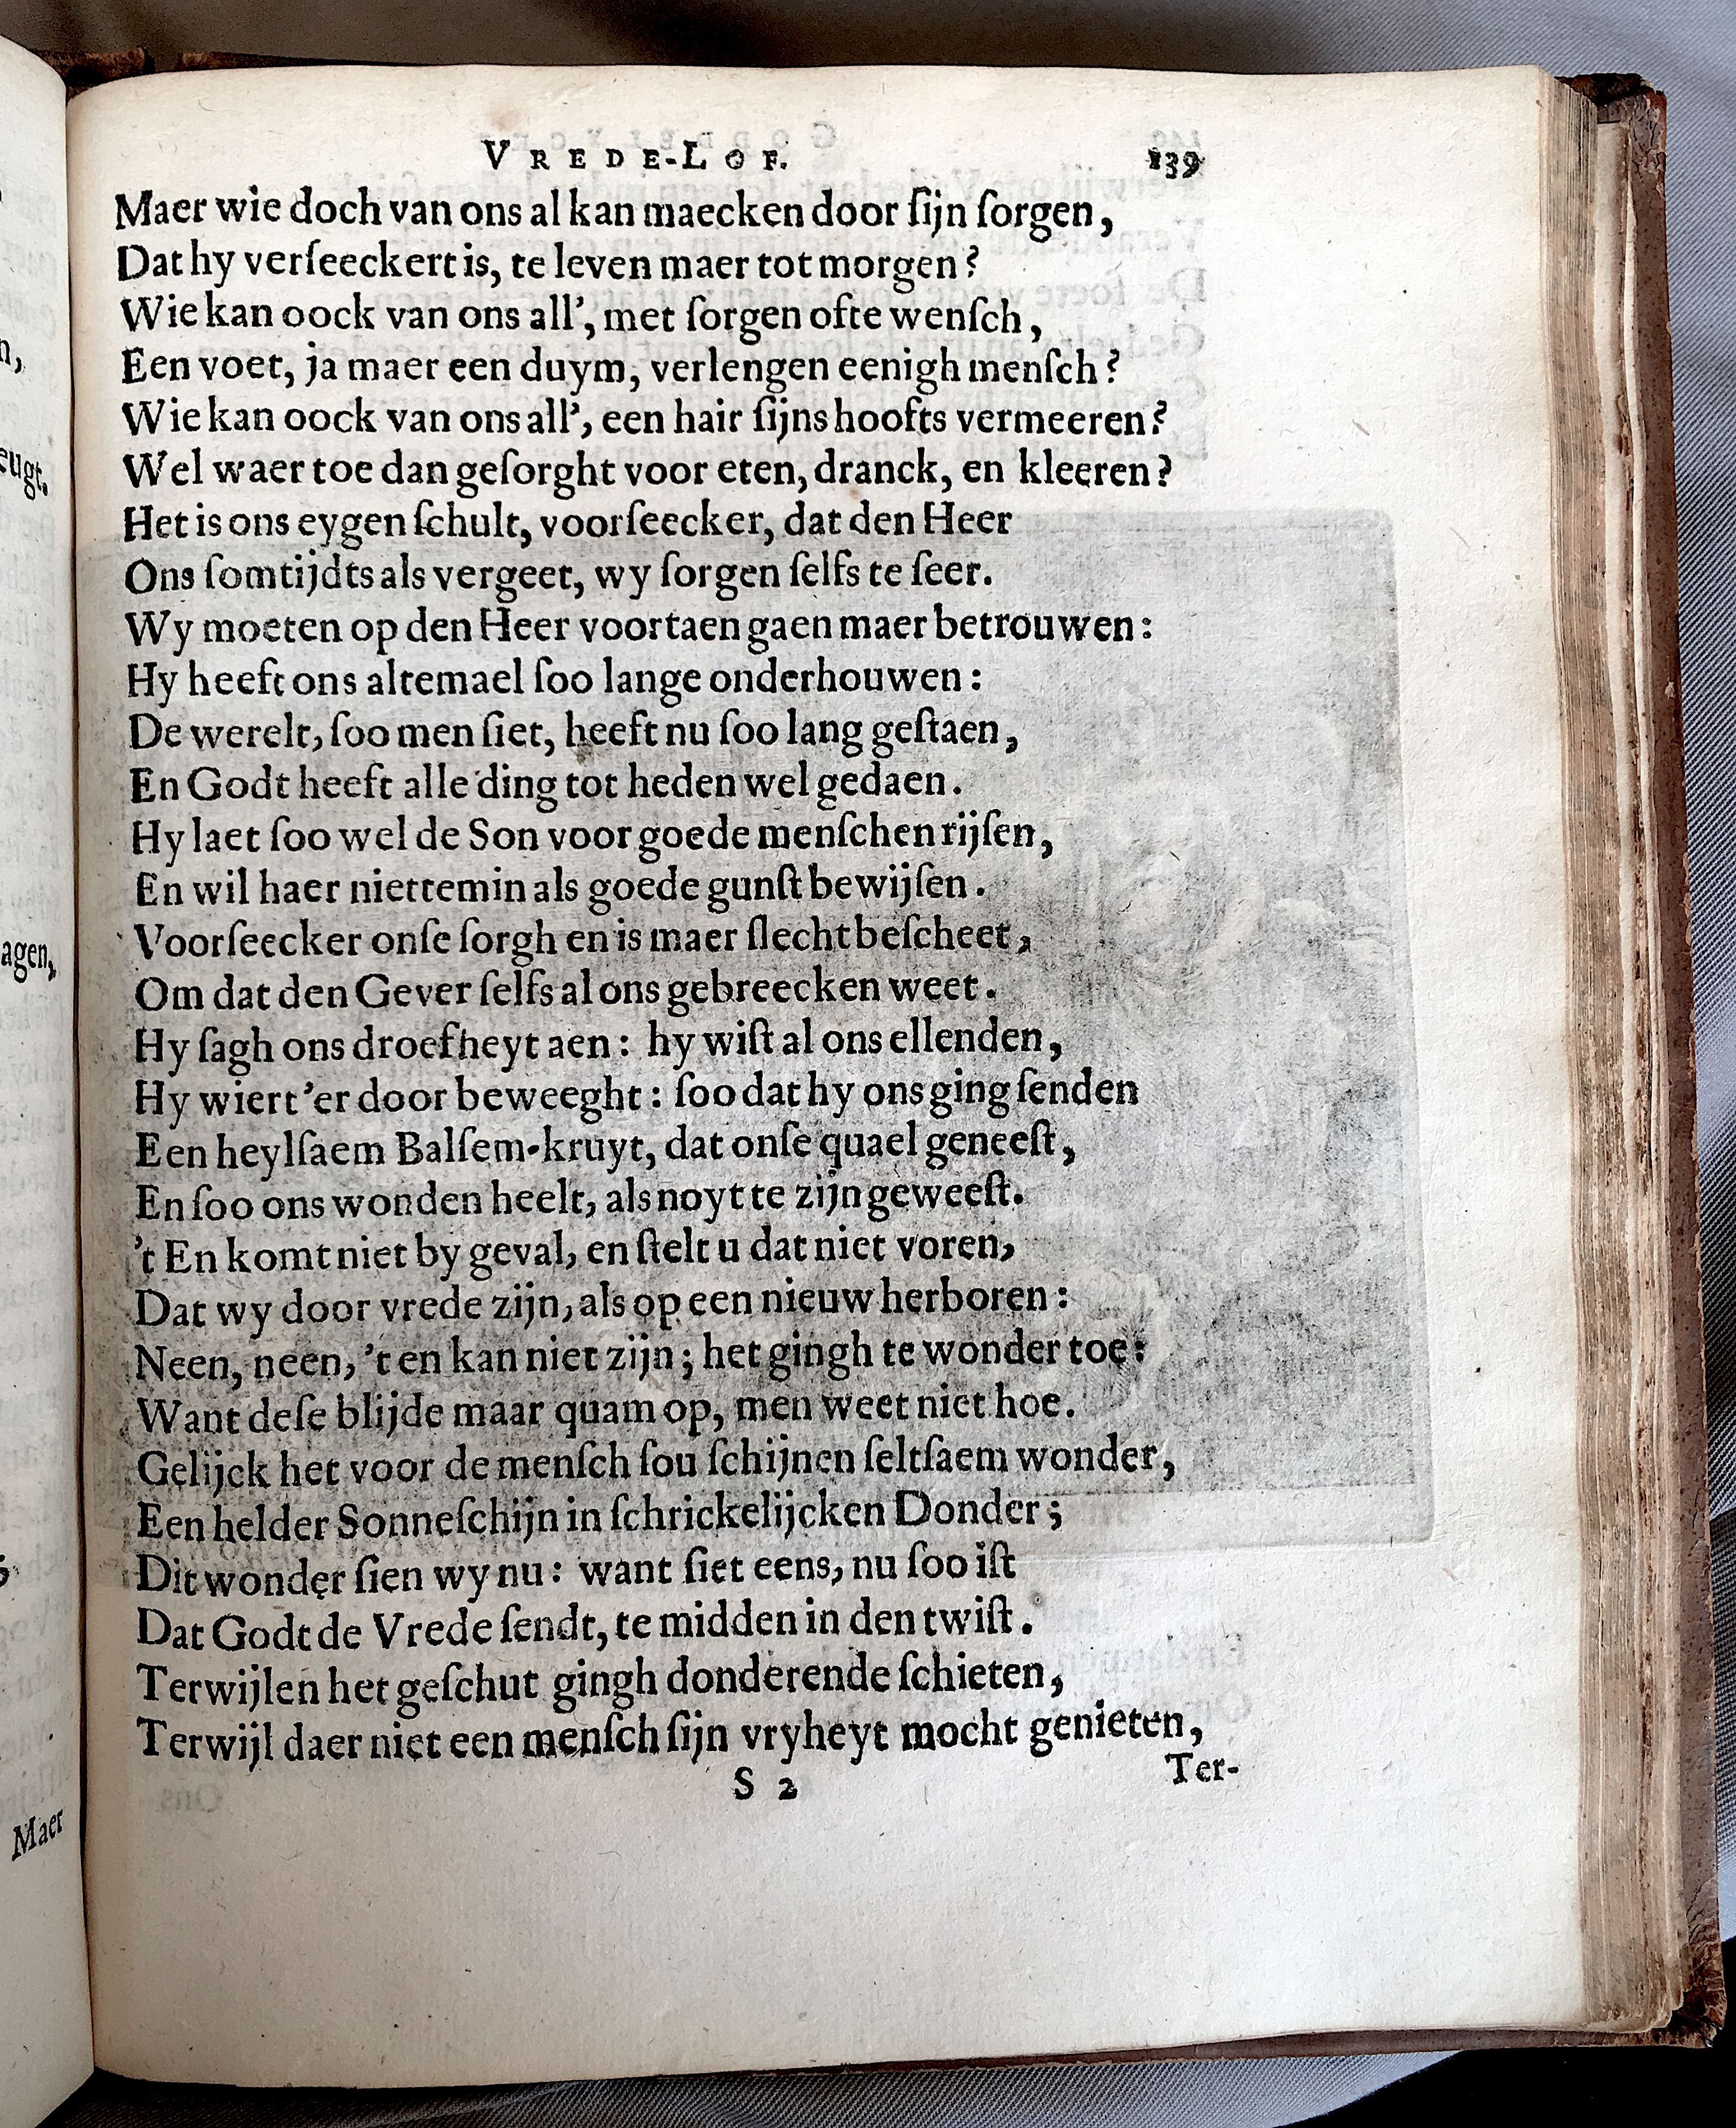 VREDE-LOF. 139
Maer wie doch van ons al kan maecken door ſijn ſorgen,
Dat hy verſeeckert is, te leven maer tot morgen?
Wie kan oock van ons all', met ſorgen ofte wenſch,
Een voet, ja maer een duym, verlengen eenigh menſch?
Wie kan oock van ons all', een hair ſijns hoofts vermeeren?
Wel waer toe dan geſorght voor eten, dranck, en kleeren?
Het is ons eygen ſchult, voorſeecker, dat den Heer
Ons ſomtijdts als vergeet, wy ſorgen ſelfs te ſeer.
Wy moeten op den Heer voortaen gaen maer betrouwen:
Hy heeft ons altemael ſoo lange onderhouwen:
De werelt, ſoo men ſiet, heeft nu ſoo lang geſtaen,
En Godt heeft alle ding tot heden wel gedaen.
Hy laet ſoo wel de Son voor goede menſchen rijſen,
En wil haer niettemin als goede gunſt bewijſen.
Voorſeecker onſe ſorgh en is maer ſlecht beſcheet,
Om dat den Gever ſelfs al ons gebreecken weet.
Hy ſagh ons droefheyt aen: hy wiſt al ons ellenden,
Hy wiert 'er door beweeght: ſoo dat hy ons ging ſenden
Een heylſaem Balſem-kruyt, dat onſe quael geneeſt,
En ſoo ons wonden heelt, als noyt te zijn geweeſt.
't En komt niet by geval, en ſtelt u dat niet voren,
Dat wy door vrede zijn, als op een nieuw herboren:
Neen, neen, 't en kan niet zijn; het gingh te wonder toe:
Want deſe blijde maar quam op, men weet niet hoe.
Gelijck het voor de menſch ſou ſchijnen ſeltſaem wonder,
Een helder Sonneſchijn in ſchrickelijcken Donder;
Dit wonder ſien wy nu: want ſiet eens, nu ſoo iſt
Dat Godt de Vrede ſendt, te midden in den twiſt.
Terwijlen het geſchut gingh donderende ſchieten,
Terwijl daer niet een menſch ſijn vryheyt mocht genieten,
S 2 Ter-
n,
eugt.
agen,
Maer